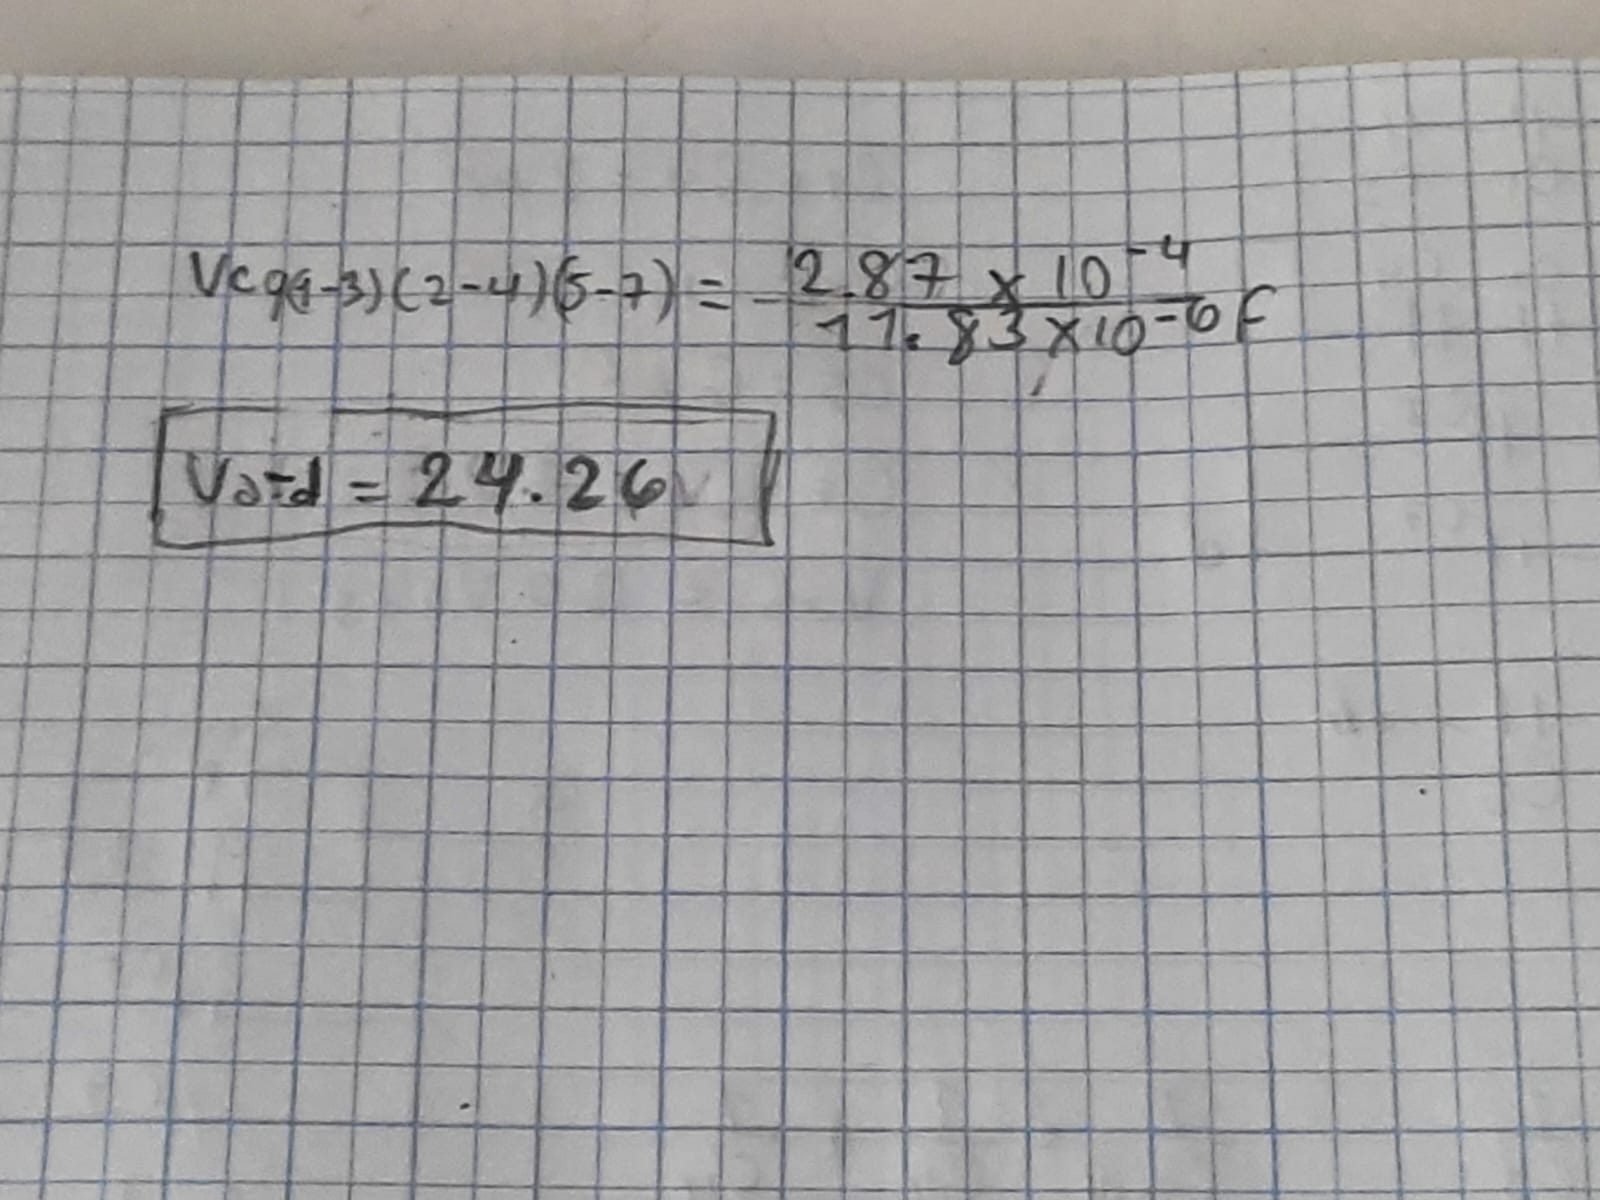 Vcq(1-3)(2-4)(5-7) = 2.87 x 10^-4 / 11.83 x 10^-6 F
Va-d = 24.26 V